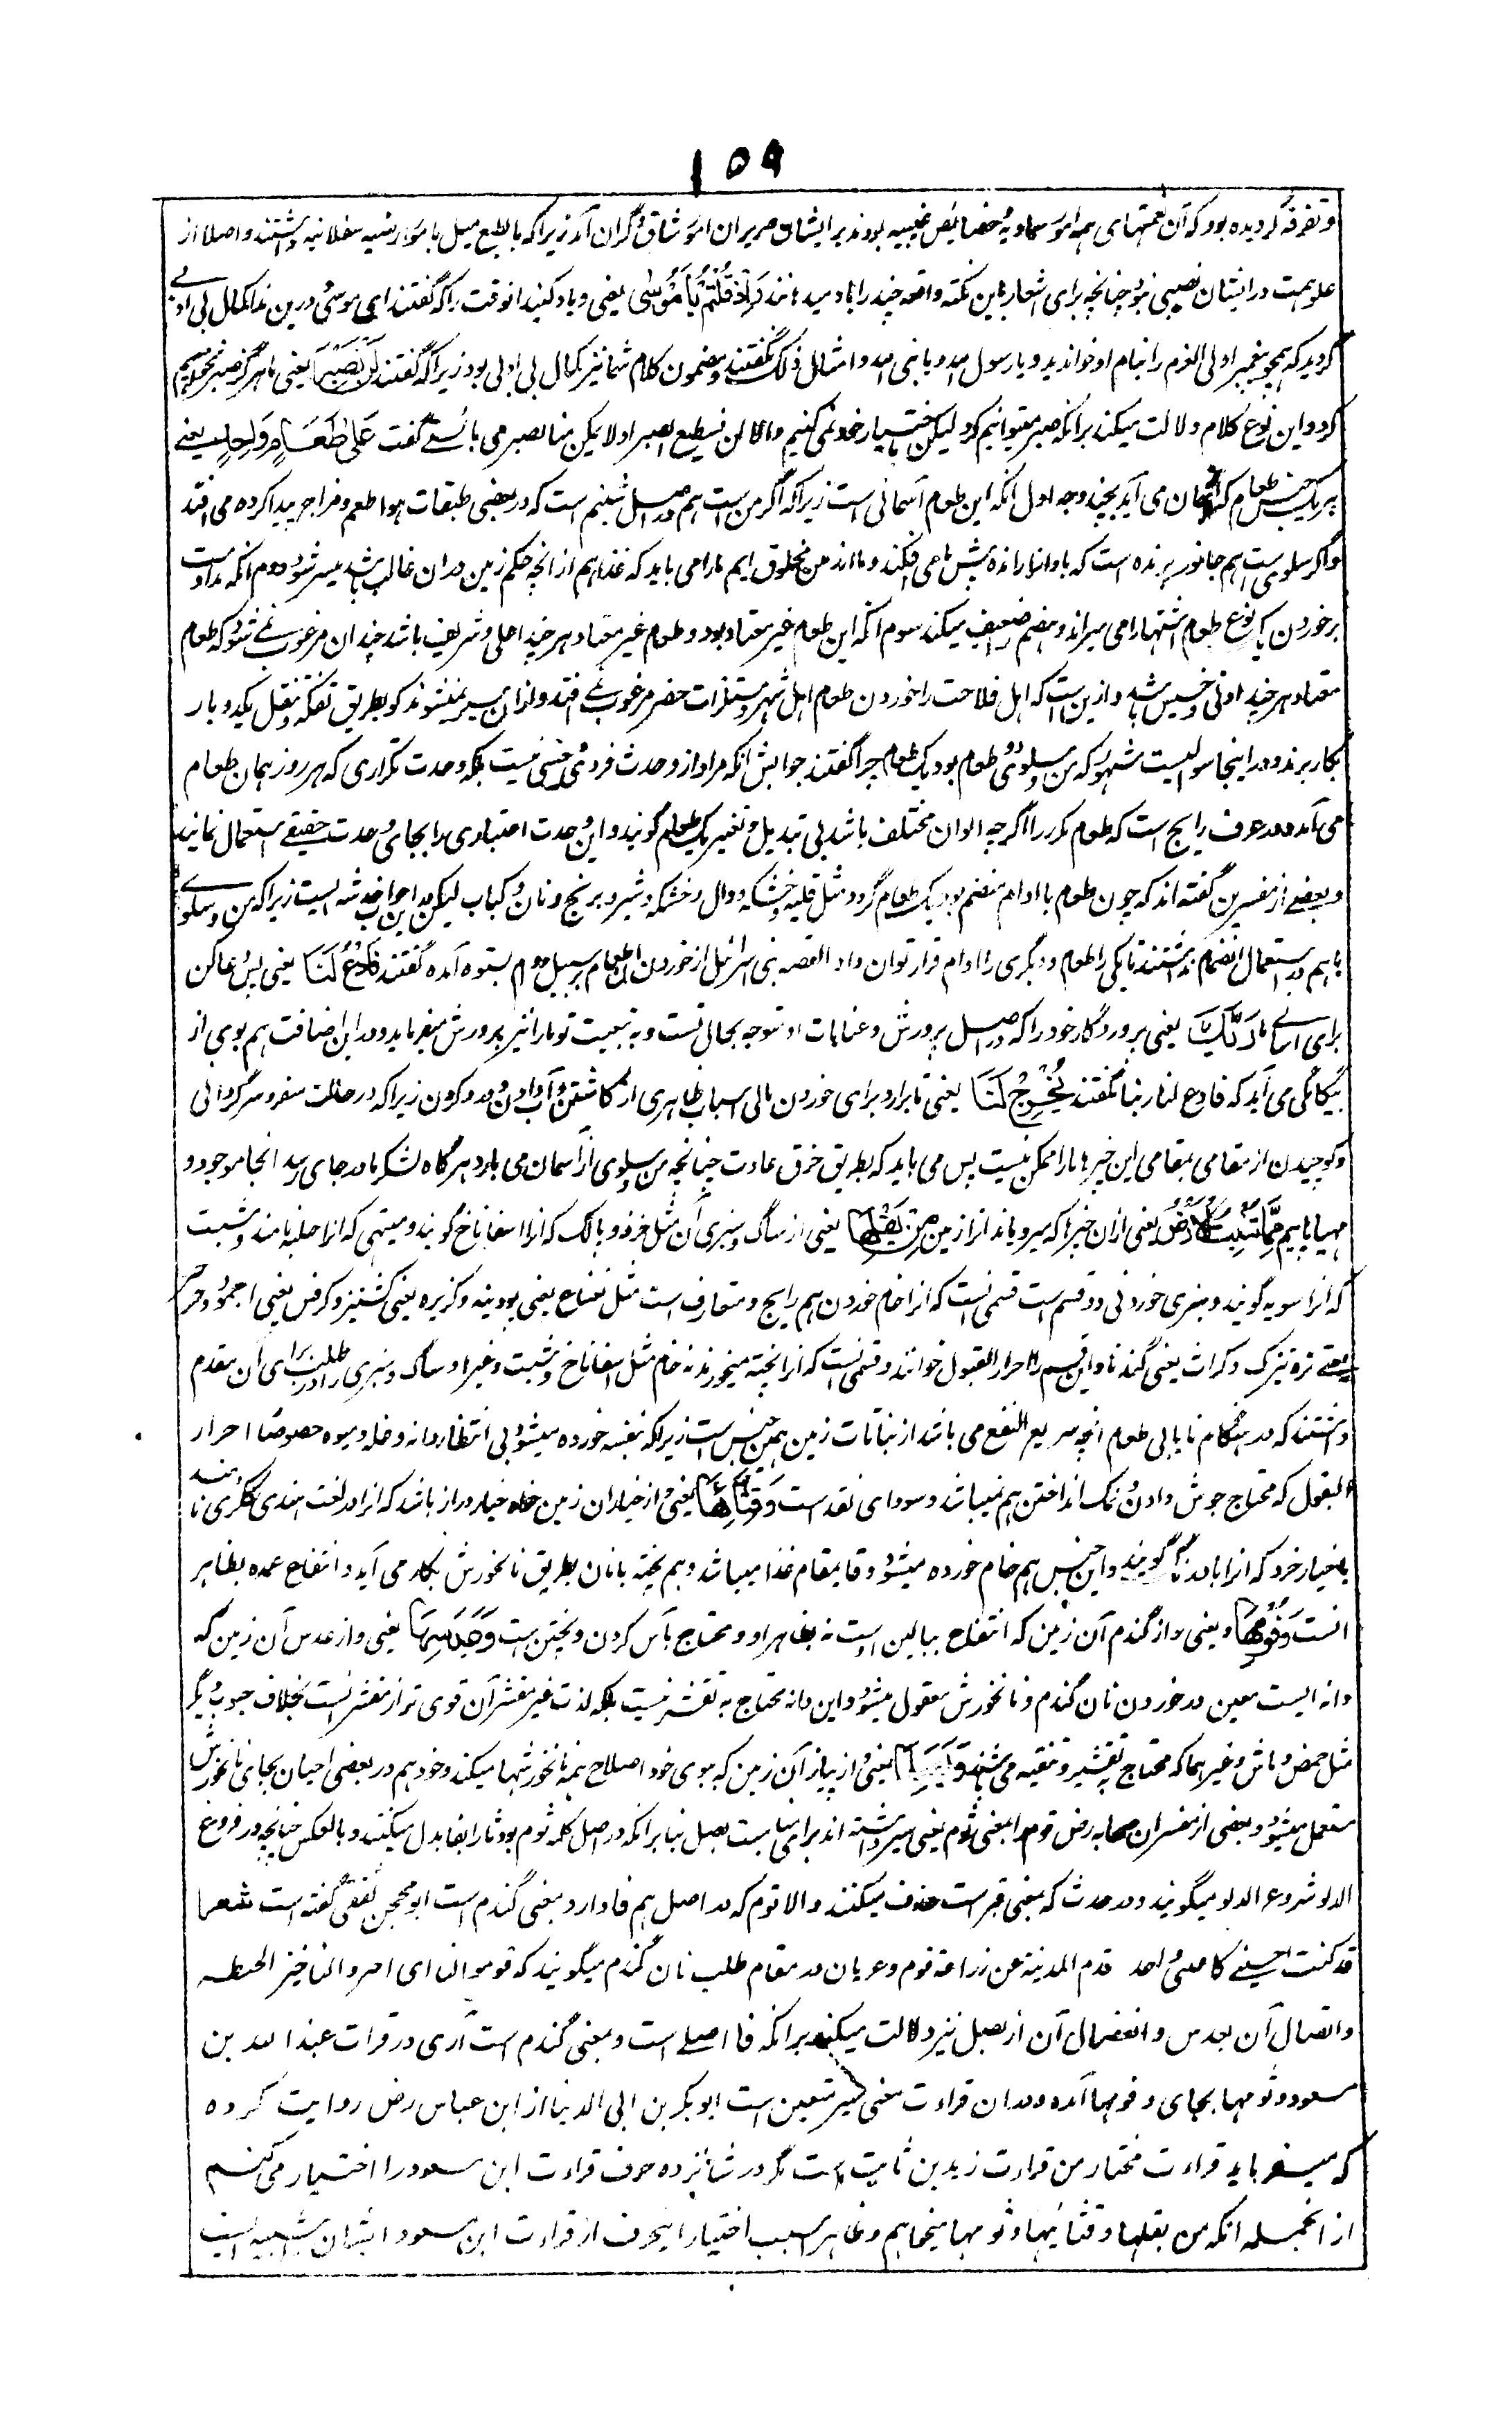 ۱۵۹
و تفرقه گردیده بود که آن نعمتهای همه امور سماویه و خصائیص غیبیه بودند بر ایشان صبر بران امور شاق و گران آمد زیرا که بالطبع میل بامور ارضیه سفلانیه داشتند و اصلا از
علو همت در ایشان نصیبی نبود چنانچه برای اشعار باین نکته واقعه چند را یاد میدهانند وَاِذْ قُلْتُمْ یَا مُوْسٰی یعنی و یاد کنید انوقت را که گفتند ای موسی درین ندا کمال بی ادبی
کردید که همچو پیغمبر اولی العزم را بنام او خواندید و یا رسول الله و یا نبی الله و امثال ذلک نگفتند و مضمون کلام شما نیز کمال بی ادبی بود زیرا که گفتند لَنْ نَصْبِرَ یعنی ما هرگز صبر نخواهیم
کرد و این نوع کلام دلالت میکند برانکه صبر میتوانیم کرد لیکن باختیار خود نمی کنیم والا لن نسطیع الصبر او لا یمکن منا الصبر می بائستے گفت عَلٰی طَعَامٍ وَّاحِدٍ یعنے
بر یک جنس طعام که از آسمان می آید بچند وجه اول انکه این طعام آسمانی است زیرا که اگر من است هم در اصل شبنم است که در بعضی طبقات هوا طعم و مزاجے پیدا کرده می افتد
و اگر سلوی است هم جانور پرنده است که باد انرا رانده پیش ما می افکند و ما از زمین مخلوق ایم ما را می باید که غذا هم از انچه حکم زمین دران غالب باشد میسر شود دوم انکه مداومت
بر خوردن یک نوع طعام اشتها را می میراند و هضم ضعیف میکند سوم انکه این طعام غیر معتاد بود و طعام غیر معتاد هر چند اعلی و شریف باشد چندان مرغوب نمے شود که طعام
معتاد هر چند ادنی و خسیس باشد و ازین است که اهل فلاحت را خوردن طعام اهل شهر و مستلذات حضر مرغوب نمے افتد و ازان سیر نمیشوند گو بطریق تفکه و تنقل یکدو بار
بکار برند و در اینجا سوالیست مشهور که من و سلوی دو طعام بود یک طعام چرا گفتند جوابش انکه مراد از وحدت فردی و جنسی نیست بلکه وحدت تکراری که هر روز همان طعام
می آمد و در عرف رایج است که طعام مکرر را اگرچه الوان مختلف باشد بی تبدیل و تغییر یک طعام گویند و این وحدت اعتباری را بجای وحدت حقیقے استعمال نمایند
و بعضے از مفسرین گفته اند که چون طعام با ادام منضم بود یک طعام گردد مثل قلیه و خشکه و دال و خشکه و شیر و برنج و نان و کباب لیکن درین جواب خدشه ایست زیرا که من و سلوے
باهم در استعمال انضمام نداشتند تا یکی را طعام و دیگری را ادام قرار توان داد القصه بنی اسرائیل از خوردن این طعام بر سبیل دوام بستوه آمده گفتند فَادْعُ لَنَا یعنی پس دعا کن
برای ما رَبَّكَ یعنی پروردگار خود را که در اصل پرورش و عنایات او متوجه بحال تست و به تبعیت تو ما را نیز پرورش میفرماید و در این اضافت هم بوی از
بیگانگی می آید که فادع لنا ربنا نگفتند یُخْرِجْ لَنَا یعنی تا برارد برای خوردن ما بی اسباب ظاهری از کاشتن و آب دادن و درو کردن زیرا که در حالت سفر و سرگردانی
و کوچیدن از مقامی بمقامی این چیزها ما را ممکن نیست پس می باید که بطریق خرق عادت چنانچه من و سلوی از آسمان می بارد هرگاه لشکر ما در جای رسد انجا موجود و
مهیا یابیم مِمَّا تُنْبِتُ الْاَرْضُ یعنی ازان چیزها که میرویاند انرا زمین مِنْ بَقْلِهَا یعنی از ساگ و سبزی آن مثل خرفه و پالک که انرا اسفاناخ گویند و میتهی که انرا حلبه نامند و شبت
که انرا سویه گویند و سبزی خوردنی دو قسم است قسمی انست که انرا خام خوردن هم رایج و متعارف است مثل نعناع یعنی پودینه و کزبره یعنی کشنیز و کرفس یعنی اجمود و
یعنے تره تیزک و کراث یعنی گندنا و این قسم را احرار البقول خوانند و قسمی انست که انرا پخته میخورند نه خام مثل اسفاناخ و شبت و غیر او ساگ و سبزی را در طلب برای آن مقدم
داشتند که در هنگام نایابی طعام انچه سریع النفع می باشد از نباتات زمین همین جنس است زیرا که بنفسه خورده میشود بی انتظار دانه و غله و میوه خصوصا احرار
البقول که محتاج جوش دادن و نمک انداختن هم نمیباشد و سودای نقد است وَقِثَّائِهَا یعنی و از خیاران زمین خواه خیار دراز باشد که انرا در لغت هندی ککری نامند
یا خیار خرد که انرا بادرنگ گویند و این جنس هم خام خورده میشود و قایمقام غذا میباشد و هم پخته با نان بطریق نانخورش بکار می آید و انتفاع عمده بظاهر
انست وَفُوْمِهَا و یعنی و از گندم آن زمین که انتفاع بباطن اوست نه بظاهر او و محتاج بآس کردن و پختن است وَعَدَسِهَا یعنی و از عدس آن زمین که
دانه ایست معین در خوردن نان گندم و نانخورش معقول میشود و این دانه محتاج به تقشیر نیست بلکه لذت غیر مقشر آن قوی تر از مقشر است بخلاف حبوب دیگر
مثل حمص و ماش و غیرهما که محتاج بتقشیر و تنقیه می باشند وَبَصَلِهَا یعنی و از پیاز آن زمین که ببوی خود اصلاح همه نانخورشها میکند و خود هم در بعضی احیان بجای نانخورش
مستعمل میشود و بعضی از مفسران صحابه رض فوم را بمعنی ثوم یعنی سیر داشته اند برای مناسبت بصل بنا برانکه در اصل کلمه ثوم بود ثا را بفا بدل میکنند و بالعکس چنانچه در فروغ
الدلو ثروغ الدلو میگویند و در جدث که بمعنی قبر است جدف میکنند والا فوم که در اصل هم فا دارد بمعنی گندم است ابو محجن ثقفی گفته است شعر
قد کنت احسبنے کاغنی واحد قدم المدینة عن زراعة فوم و عربان در مقام طلب نان گندم میگویند که فوموا لنا ای اخبزوا لنا خبز الحنطه
و اتصال آن بعدس و انفصال آن از بصل نیز دلالت میکند برانکه فا اصلے است و بمعنی گندم است آری در قرات عبد الله بن
مسعود و ثومها بجای و فومها آمده و دران قراءت معنی سیر متعین است ابوبکر بن ابی الدنیا از ابن عباس رض روایت کرده
که میفرماید قراءت مختار من قراءت زید بن ثابت است مگر در شانزده حرف قراءت ابن مسعود را اختیار می کنم
از انجمله انکه من بقلها و قثائها و ثومها میخوانم و ظاهرا سبب اختیار اینحرف از قراءت ابن مسعود ایشان است